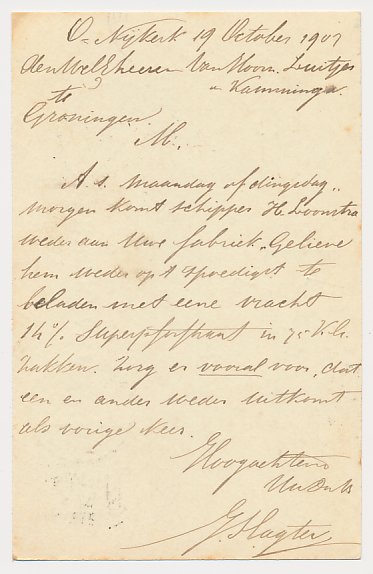 O-Nijkerk 19 October 1907
den WelEheeren Van Hoorn Luitjes
en Kamminga
te
Groningen.
M.,
A.s. maandag of dingsdag
morgen komt schipper H. Loonstra
weder aan Uwe fabriek. Gelieve
hem weder op 't spoedigst te
beladen met eene vracht
14% Superphosphaat in 75 K.G.
zakken. Zorg er vooral voor, dat
een en ander weder uitkomt
als vorige keer.
Hoogachtend
Uw Dw
J. Slagter